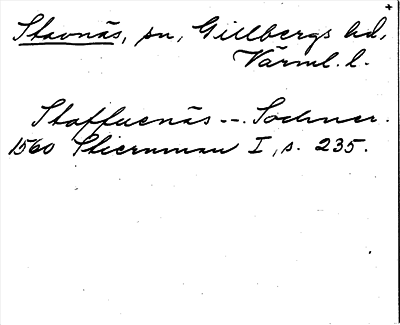 Stavnäs, sn, Gillbergs hd,
Värml. l.
Staffuenäs -- Sochner.
1560 Stiernman I, s. 235.